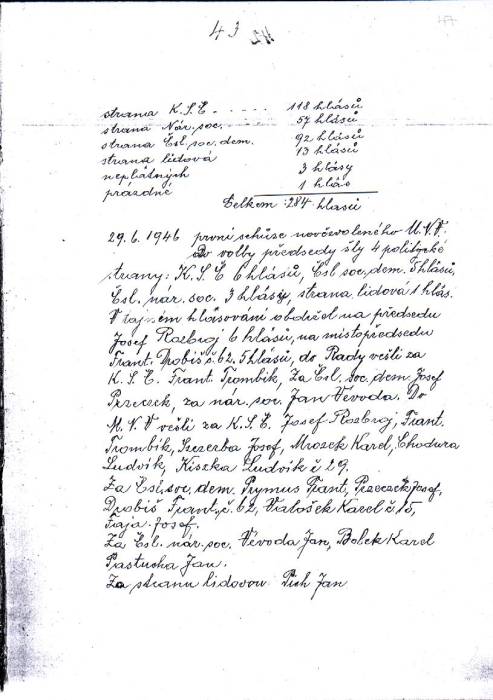 43 42 47
strana K.S.Č. . . . . . 118 hlasů
strana Nár. soc. 57 hlasů
strana Čsl. soc. dem. 92 hlasů
strana lidová 13 hlasů
neplatných 3 hlasy
prázdné 1 hlas
Celkem : 284 hlasů
29. 6. 1946 první schůze novězvoleného M.N.V.
Do volby předsedy šly 4 politycké
strany: K.S.Č. 6 hlasů, Čsl. soc. dem. 5 hlasů,
Čsl. nár. soc. 3 hlasy, strana lidová 1 hlas.
V tajném hlasování obdržel na předsedu
Josef Rozbroj 6 hlasů, na místopředsedu
Frant. Drobiš č. 62. 5 hlasů, do Rady vešli za
K.S.Č. Frant. Trombik, Za Čsl. soc. dem. Josef
Przeczek, za nár. soc. Jan Vévoda. Do
M.N.V vešli za K.S.Č. Josef Rozbroj, Frant.
Trombik, Szczerba Josef, Mrozek Karel, Chodura
Ludvik, Kiszka Ludvik č 29.
Za Čsl. soc. dem. Prymus Frant, Przeczek Josef,
Drobiš Frant. č. 62, Karel č 15,
Faja Josef.
Za Čsl. nár. soc. Vévoda Jan, Bolek Karel
Pastucha Jan.
Za stranu lidovou Pich Jan